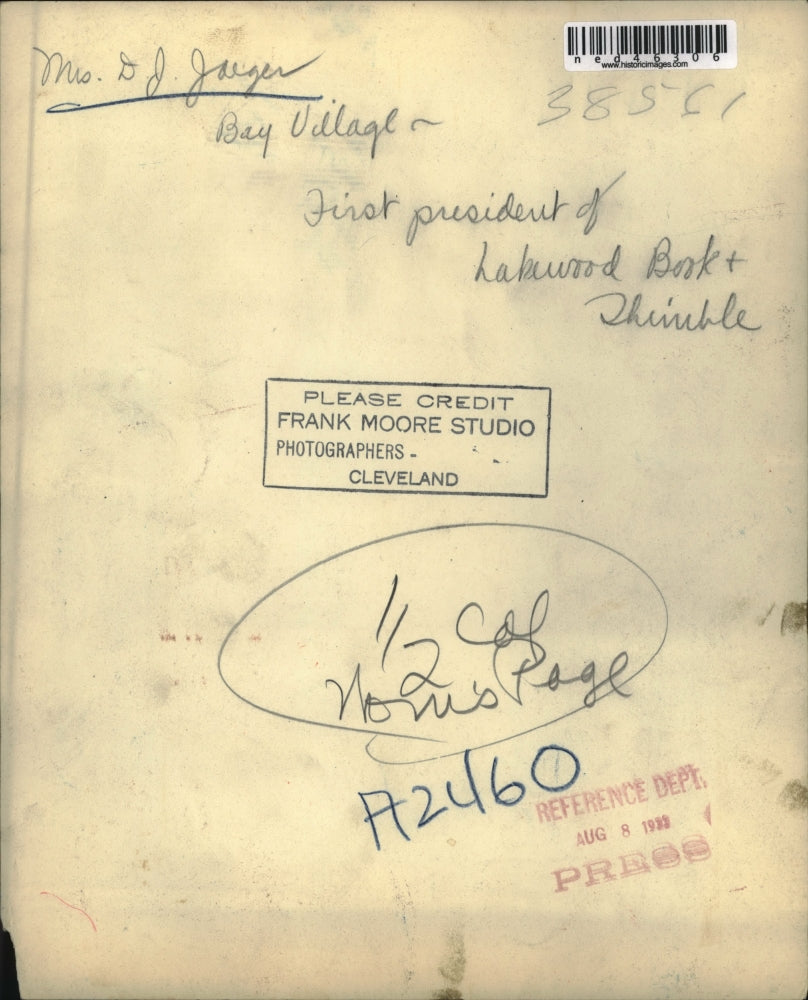 ned46306
www.historicimages.com
Mrs. D J. Jaeger
38561
Bay Village -
First president of
Lakewood Book +
Thimble
PLEASE CREDIT
FRANK MOORE STUDIO
PHOTOGRAPHERS -
CLEVELAND
1/2 Col
Wom's Page
A2460
REFERENCE DEPT.
AUG 8 1933
PRESS